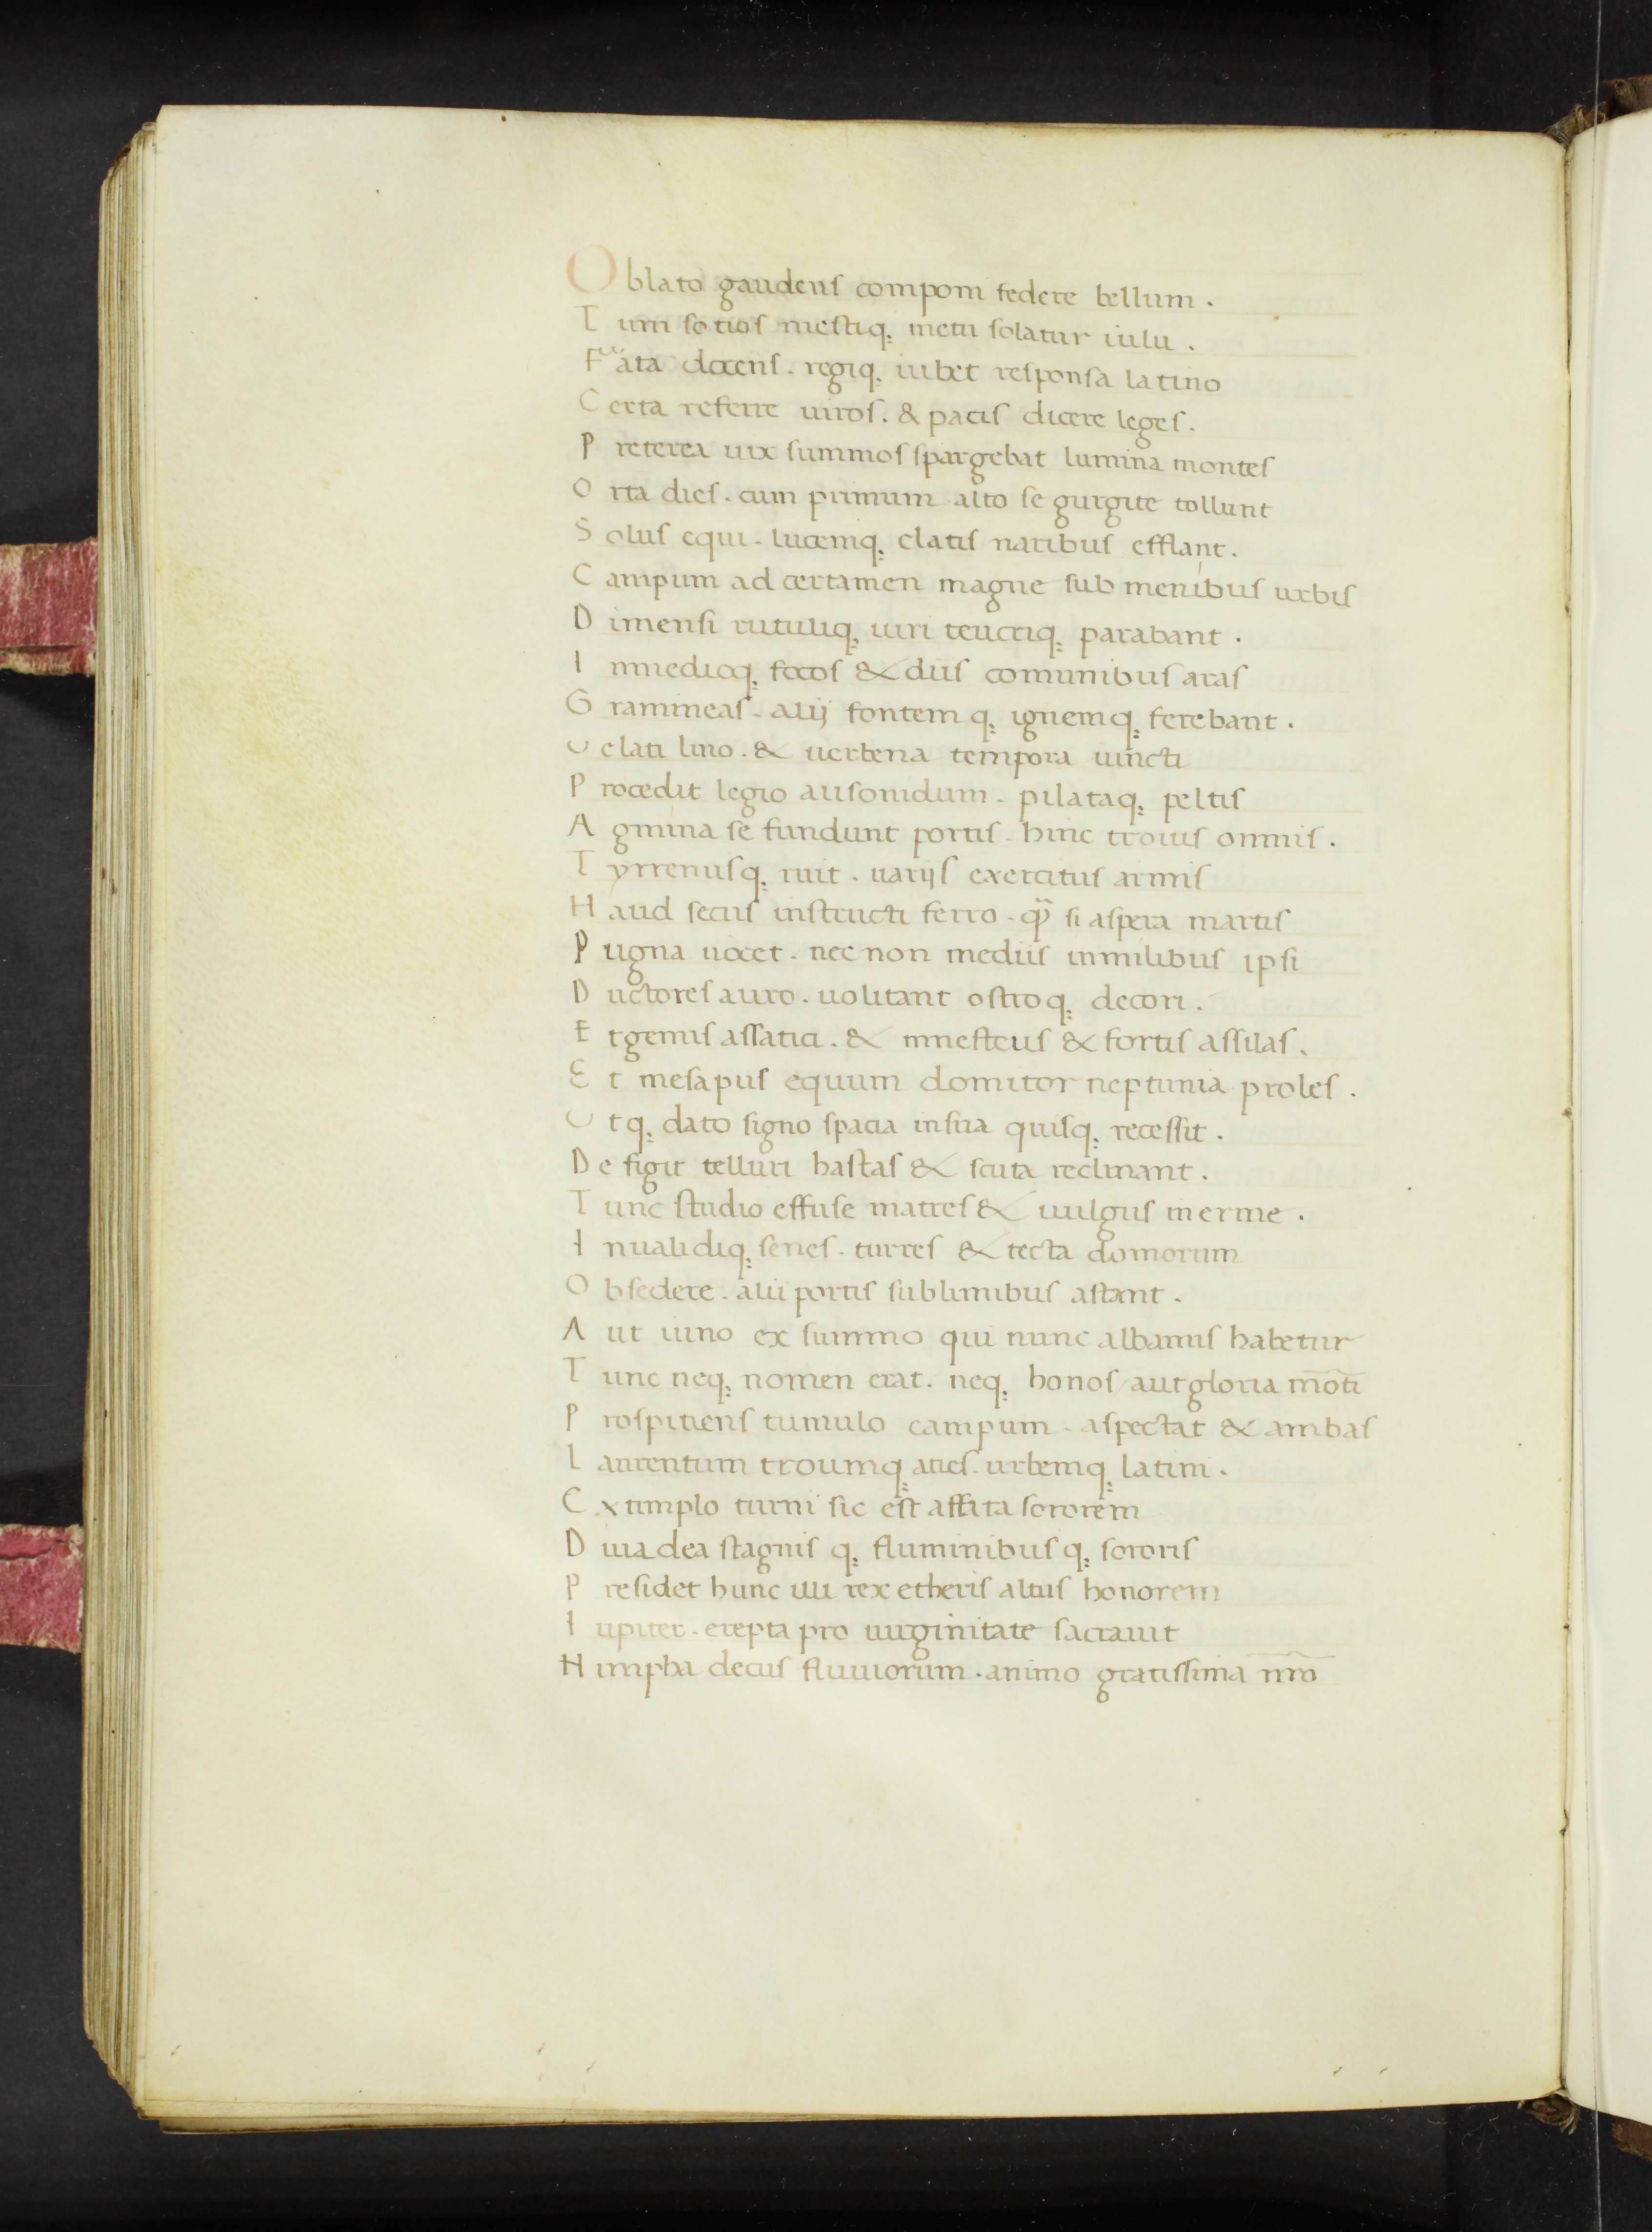 Oblato gaudens componi federe bellum .
Tum sotios mestiq; metu solatur iulu .
Fata docens . regiq; iubet responsa latino
Certa referre uiros . & pacis dicere leges .
Preterea uix summos spargebat lumina montes
Orta dies . cum primum alto se gurgite tollunt
Solus equi . lucemq; elatis naribus efflant .
Campum ad certamen magne sub menibus urbis
Dimensi rutuliq; uiri teucriq; parabant .
Inmedioq; focos & diis comunibus aras
Gramineas . alij fontemq; ignemq; ferebant .
Uelati lino . & uerbena tempora uincti
Procedit legio ausonidum . pilataq; peltis
Agmina se fundunt portis . hinc troius omnis .
Tyrrenusq; ruit . uarijs exercitus armis
Haud secus instructi ferro . q̃ si aspera martis
Pugna uocet . nec non mediis inmilibus ipsi
Ductores auro . uolitant ostroq; decori .
Et genus assatici . & mnesteus & fortis assilas .
Et mesapus equum domitor neptunia proles .
Utq; dato signo spacia insua quisq; recessit .
Defigit telluri hastas & scuta reclinant .
Tunc studio effuse matres & uulgus inerme .
Inualidiq; senes . turres & tecta domorum
Obsedere . alii portis sublimibus astant .
Aut iuno ex summo qui nunc albanus habetur
Tunc neq; nomen erat . neq; honos / aut gloria mōti
Prospitiens tumulo campum . aspectat & ambas
Laurentum troumq; aties . urbemq; latini .
Extimplo turni sic est affata sororem
Diua dea stagnis q; fluminibus q; sororis
Presidet hunc illi rex etheris altus honorem
Iupiter . erepta pro uirginitate sacrauit
Nimpha decus fluuiorum . animo gratissima nr̄o